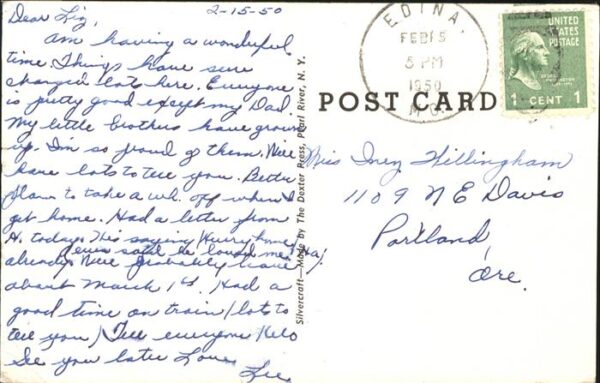 2-15-50
Dear Liz,
Am having a wonderful
time. Things have sure
changed lots here. Everyone
is pretty good except my Dad.
My little brothers have grown
up. I'm so proud of them. Will
have lots to tell you. Better
plan to take a wk. off when I
get home. Had a letter from
A. today. He's saying "Hurry home"
Even said he loved me Ha,
already. Will probably leave
about March 1st. Had a
good time on train (lots to
tell you) Tell everyone Helo
See you later Love
Lee
Silvercraft—Made by The Dexter Press, Pearl River, N. Y.
EDINA,
FEB 15
5 PM
1950
MO.
UNITED
STATES
POSTAGE
1 CENT 1
POST CARD
Miss Inez Hillingham
1109 N E Davis
Portland,
Ore.